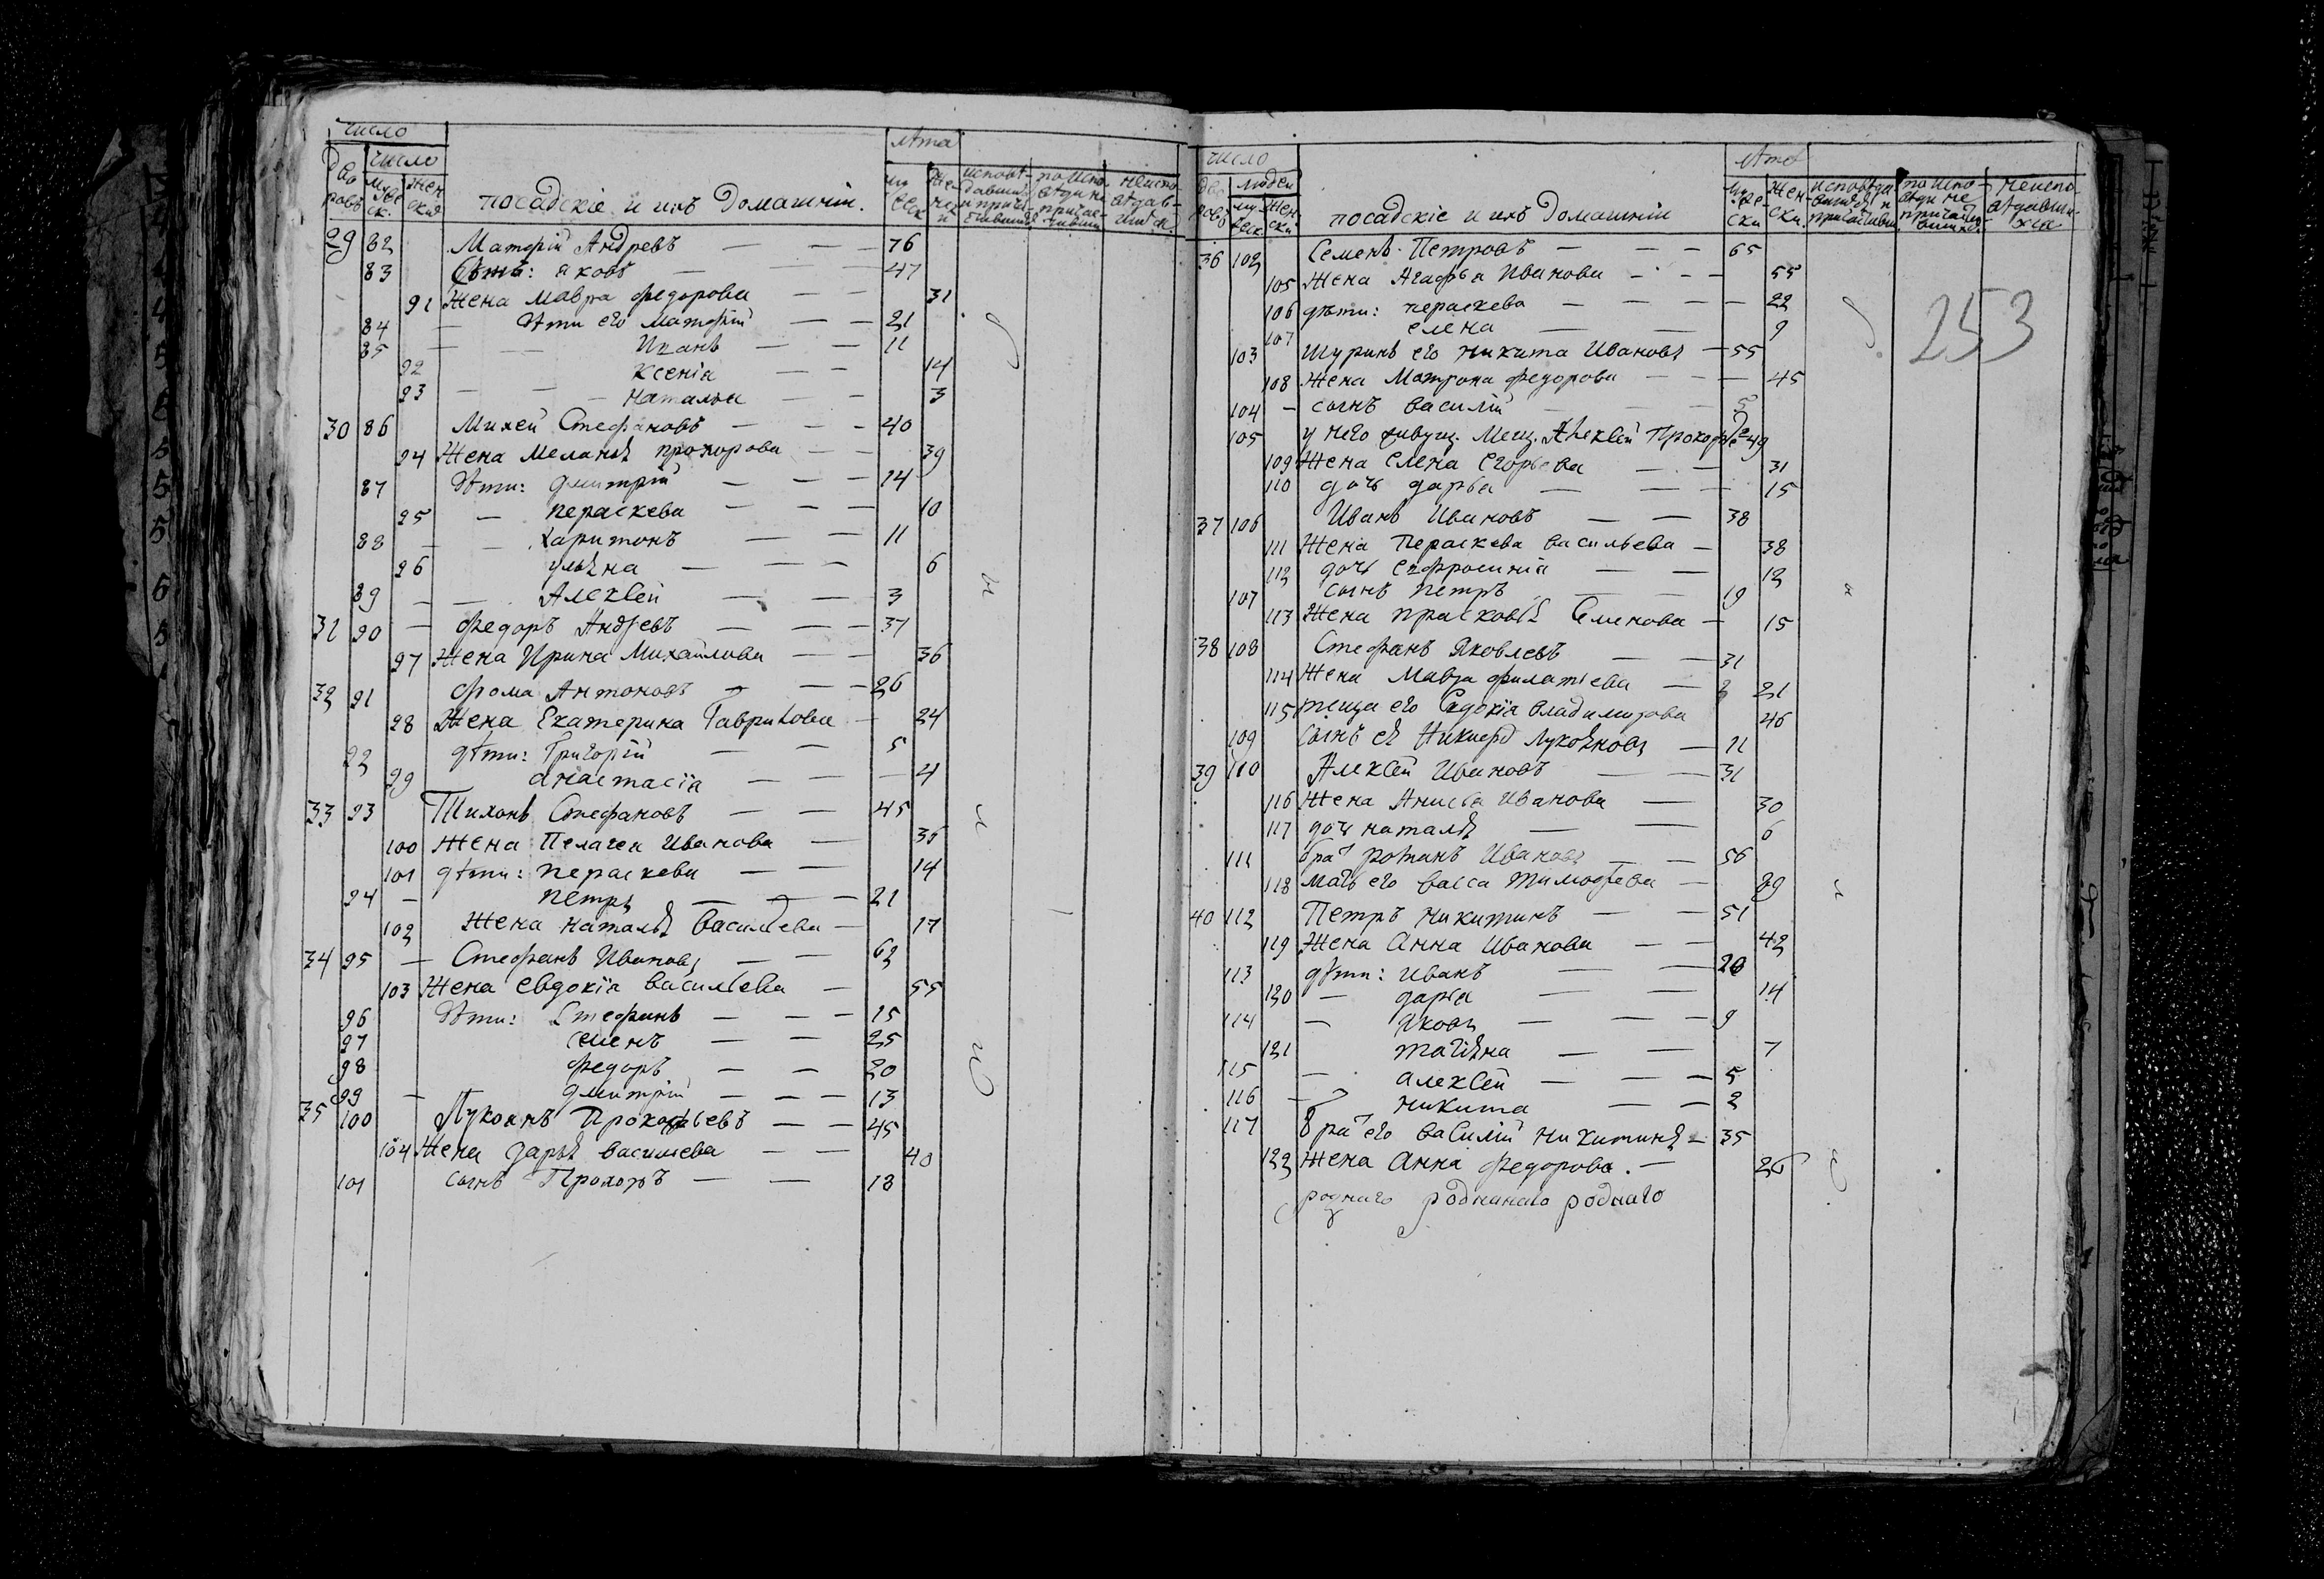 число лѣта
дво ровъ число муже ск. жен ския посадскіе и ихъ домашніи. му ческ же нски исповѣ- давши и прича- стившия по испо вѣди не причас тивши неиспо- вѣдав- шия ся
29 82 Матфій Андревъ — — — 76
83 Сынъ: яковъ — — 47
91 Жена мавра федорова — — 31
84 — дѣти его матфій — — 21
85 — — Иванъ — — 11
92 ксенія — — 14
93 — — — наталья — — 3
30 86 Михей Стефановъ — — — 40
94 Жена меланья прохорова — — 39
87 дѣти: дмитрій — — — 14
95 — пераскева — — — 10
88 — — харитонъ — — 11
96 ульяна — — — 6
89 — — Алексей — — 3
31 90 — федоръ Андревъ — — — 37
97 Жена Ирина Михайлова — — 36
32 91 фома Антоновъ — — — 26
98 Жена Екатерина Гаврилова — 24
92 дѣти: Григорій — — 5
99 анастасіа — — — 4
33 93 Тихонъ Стефановъ — — 45
100 Жена Пелагея Иванова — 35
101 дѣти: пераскева — — 14
94 — петръ — — — 21
102 Жена наталья Васильева — 17
34 95 — Стефанъ Ивановъ — — 62
103 Жена евдокіа васильева — 55
96 дѣти: Стефанъ — — — 15
97 семенъ — — 25
98 федоръ — — 20
99 — дмитрій — — — 13
35 100 Лукоянъ Прокофьевъ — — 45
104 Жена дарья васильева — — 40
101 сынъ Прохоръ — — 18
число лѣта
дво ровъ людей му ческ. жен ски посадскіе и ихъ домашніи му же- ски жен- ски. исповѣда- вшихся и причастивш. по испо- вѣди не причасти вшихся неиспо- вѣдавши- хся
36 102 Семенъ Петровъ — — — 65
105 Жена Агафья Иванова — — — 55
106 дѣти: пераскева — — — — 22
107 елена — — 9
253
103 шуринъ его никита Ивановъ — 55
108 Жена Матрона федорова — — — 45
104 — сынъ василій — — 5
105 у него живущ. мещ. Алексей Прокофье 49
109 Жена Елена Егорьева — — 31
110 дочь дарья — — — 15
37 106 Иванъ Ивановъ — — 38
111 Жена Пераскева васильева — 38
112 дочь Евфросиніа — — 12
107 сынъ петръ — — 19
113 Жена прасковья Семенова — 15
38 108 Стефанъ Яковлевъ — — 31
114 Жена Мавра филатьева — 21
115 теща его Евдокіа владимирова 46
109 сынъ ея Никифор Лукояновъ — 11
39 110 Алексей Ивановъ — — 31
116 Жена Анисья Иванова — 30
117 дочь наталья — — 6
111 брат романъ Ивановъ — — 56
118 мать его васса тимофева — 89
40 112 Петръ никитинъ — — 51
119 Жена Анна Иванова — — 42
113 дѣти: иванъ — — 20
120 — дарья — — 14
114 — яковъ — — — 9
121 татьяна — — 7
115 — алексей — — — 5
116 — никита — — 2
117 брат его василій никитинъ — 35
122 Жена Анна федорова. — 26
роднаго роднаго